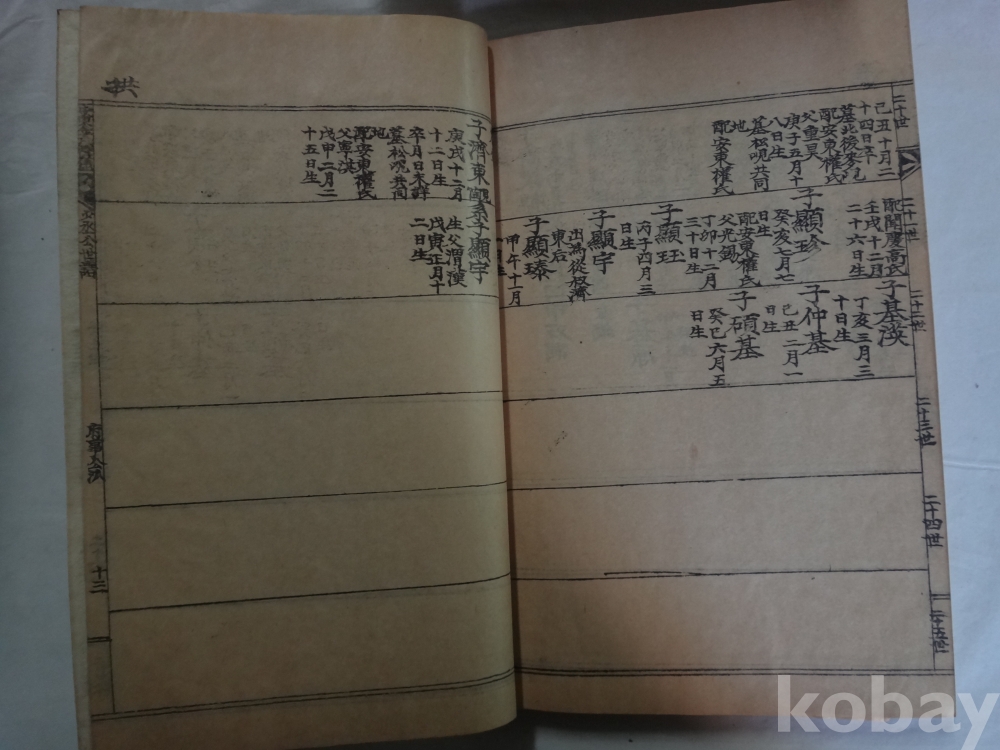 二十世
己丑十月二
十四日卒
父重昊
配安東權氏
庚子五月十
八日生
墓松峴共同
地
配安東權氏
二十一世
配聞慶高氏
壬戌十二月
二十六日生
子顯珍
癸亥七月七
日生
配安東權氏
父光錫
丁卯十二月
三十日生
子顯玨
丙子四月三
日生
子顯宇
出為從叔濟
東后
子顯瑧
甲午十一月
二十二世
子基渶
丁亥三月三
十日生
子仲基
己丑二月一
日生
子碩基
癸巳六月五
日生
二十三世
二十四世
二十五世
子濟東
庚戌十二月
十二日生
卒月日未詳
墓松峴共同
地
配安東權氏
父憲淇
戊申二月二
十五日生
系子顯宇
生父渭漢
戊寅正月十
二日生
十三
kobay